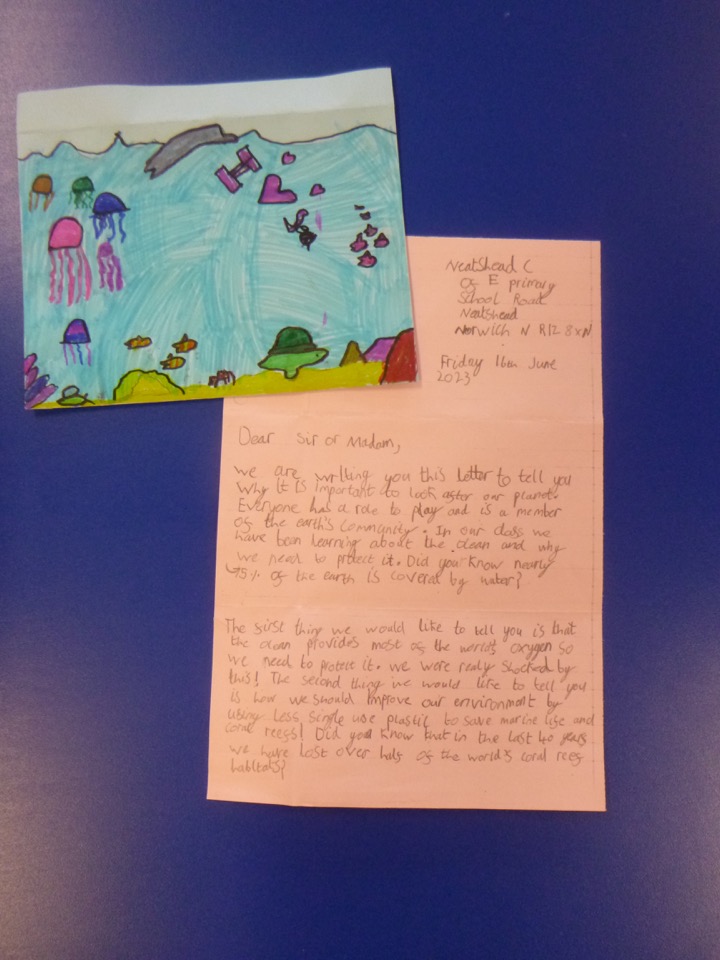 Neatshead C
of E primary
School Road
Neatshead
Norwich N R12 8XN
Friday 16th June
2023
Dear Sir or Madam,
We are writing you this letter to tell you
why it is important to look after our planet.
Everyone has a role to play and is a member
of the earth's community. In our class we
have been learning about the ocean and why
we need to protect it. Did you know nearly
75% of the earth is covered by water?
The first thing we would like to tell you is that
the ocean provides most of the world's oxygen so
we need to protect it. we were realy shocked by
this! The second thing we would like to tell you
is how we should improve our environment by
using less single use plastic to save marine life and
coral reefs! Did you know that in the last 40 years
we have lost over half of the world's coral reef
habitats?